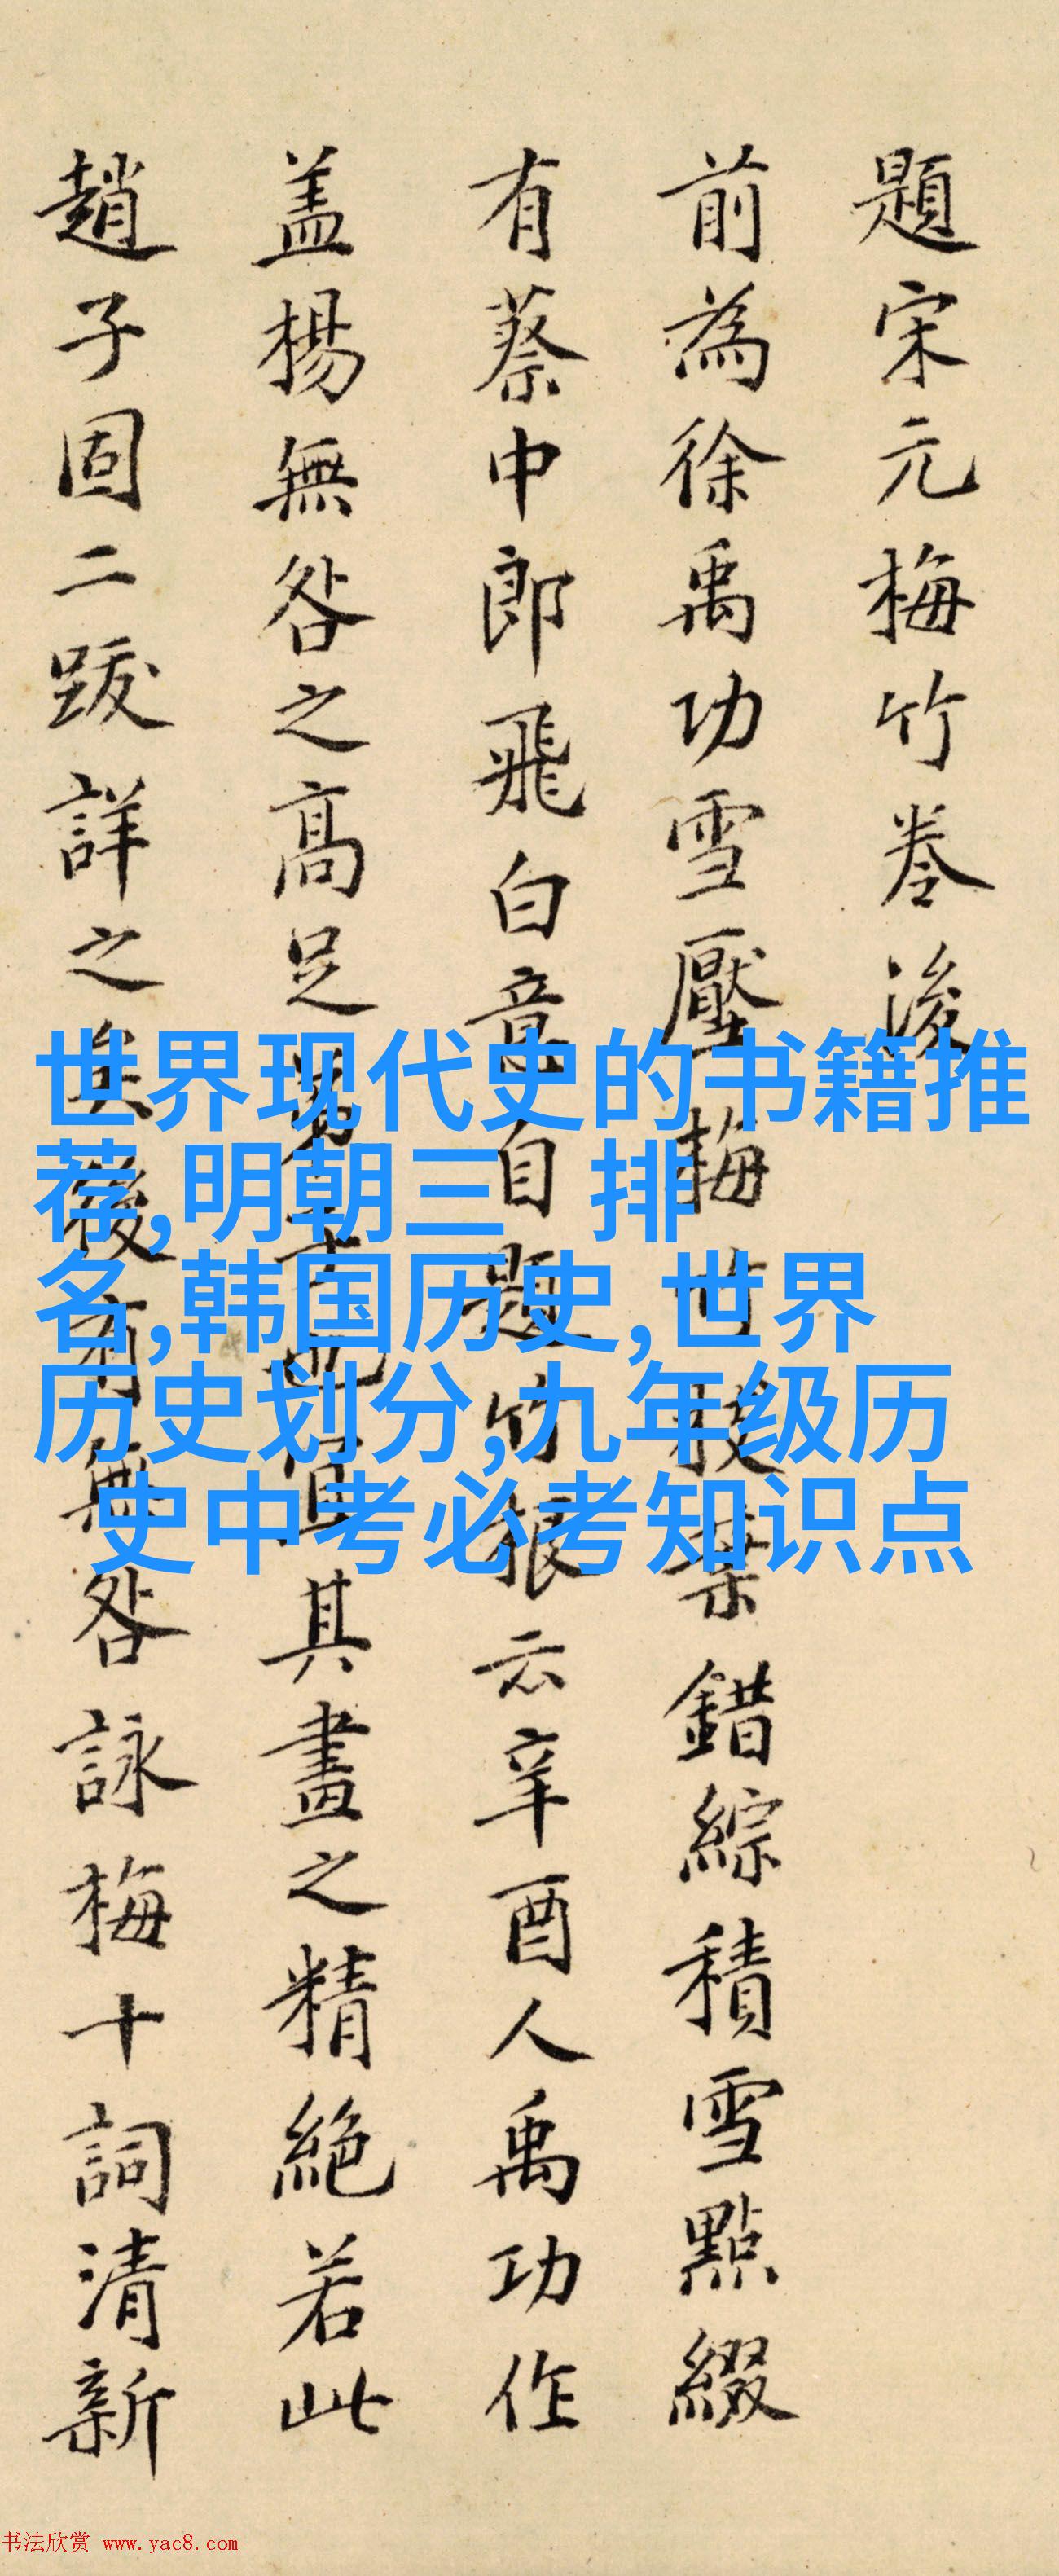 題宋元梅竹卷後
前為徐禹功雪壓梅竹枝葉錯綜積雪點綴
有蔡中郎飛白意自題竹根云辛酉人禹功作
盖楊無咎之高足也宜其畫之精絕若此
趙子固二跋詳之矣後有無咎詠梅十詞清新
世界现代史的书籍推
荐,明朝三 排
名,韩国历史,世界
历史划分,九年级历
史中考必考知识点
书法欣赏 www.yac8.com